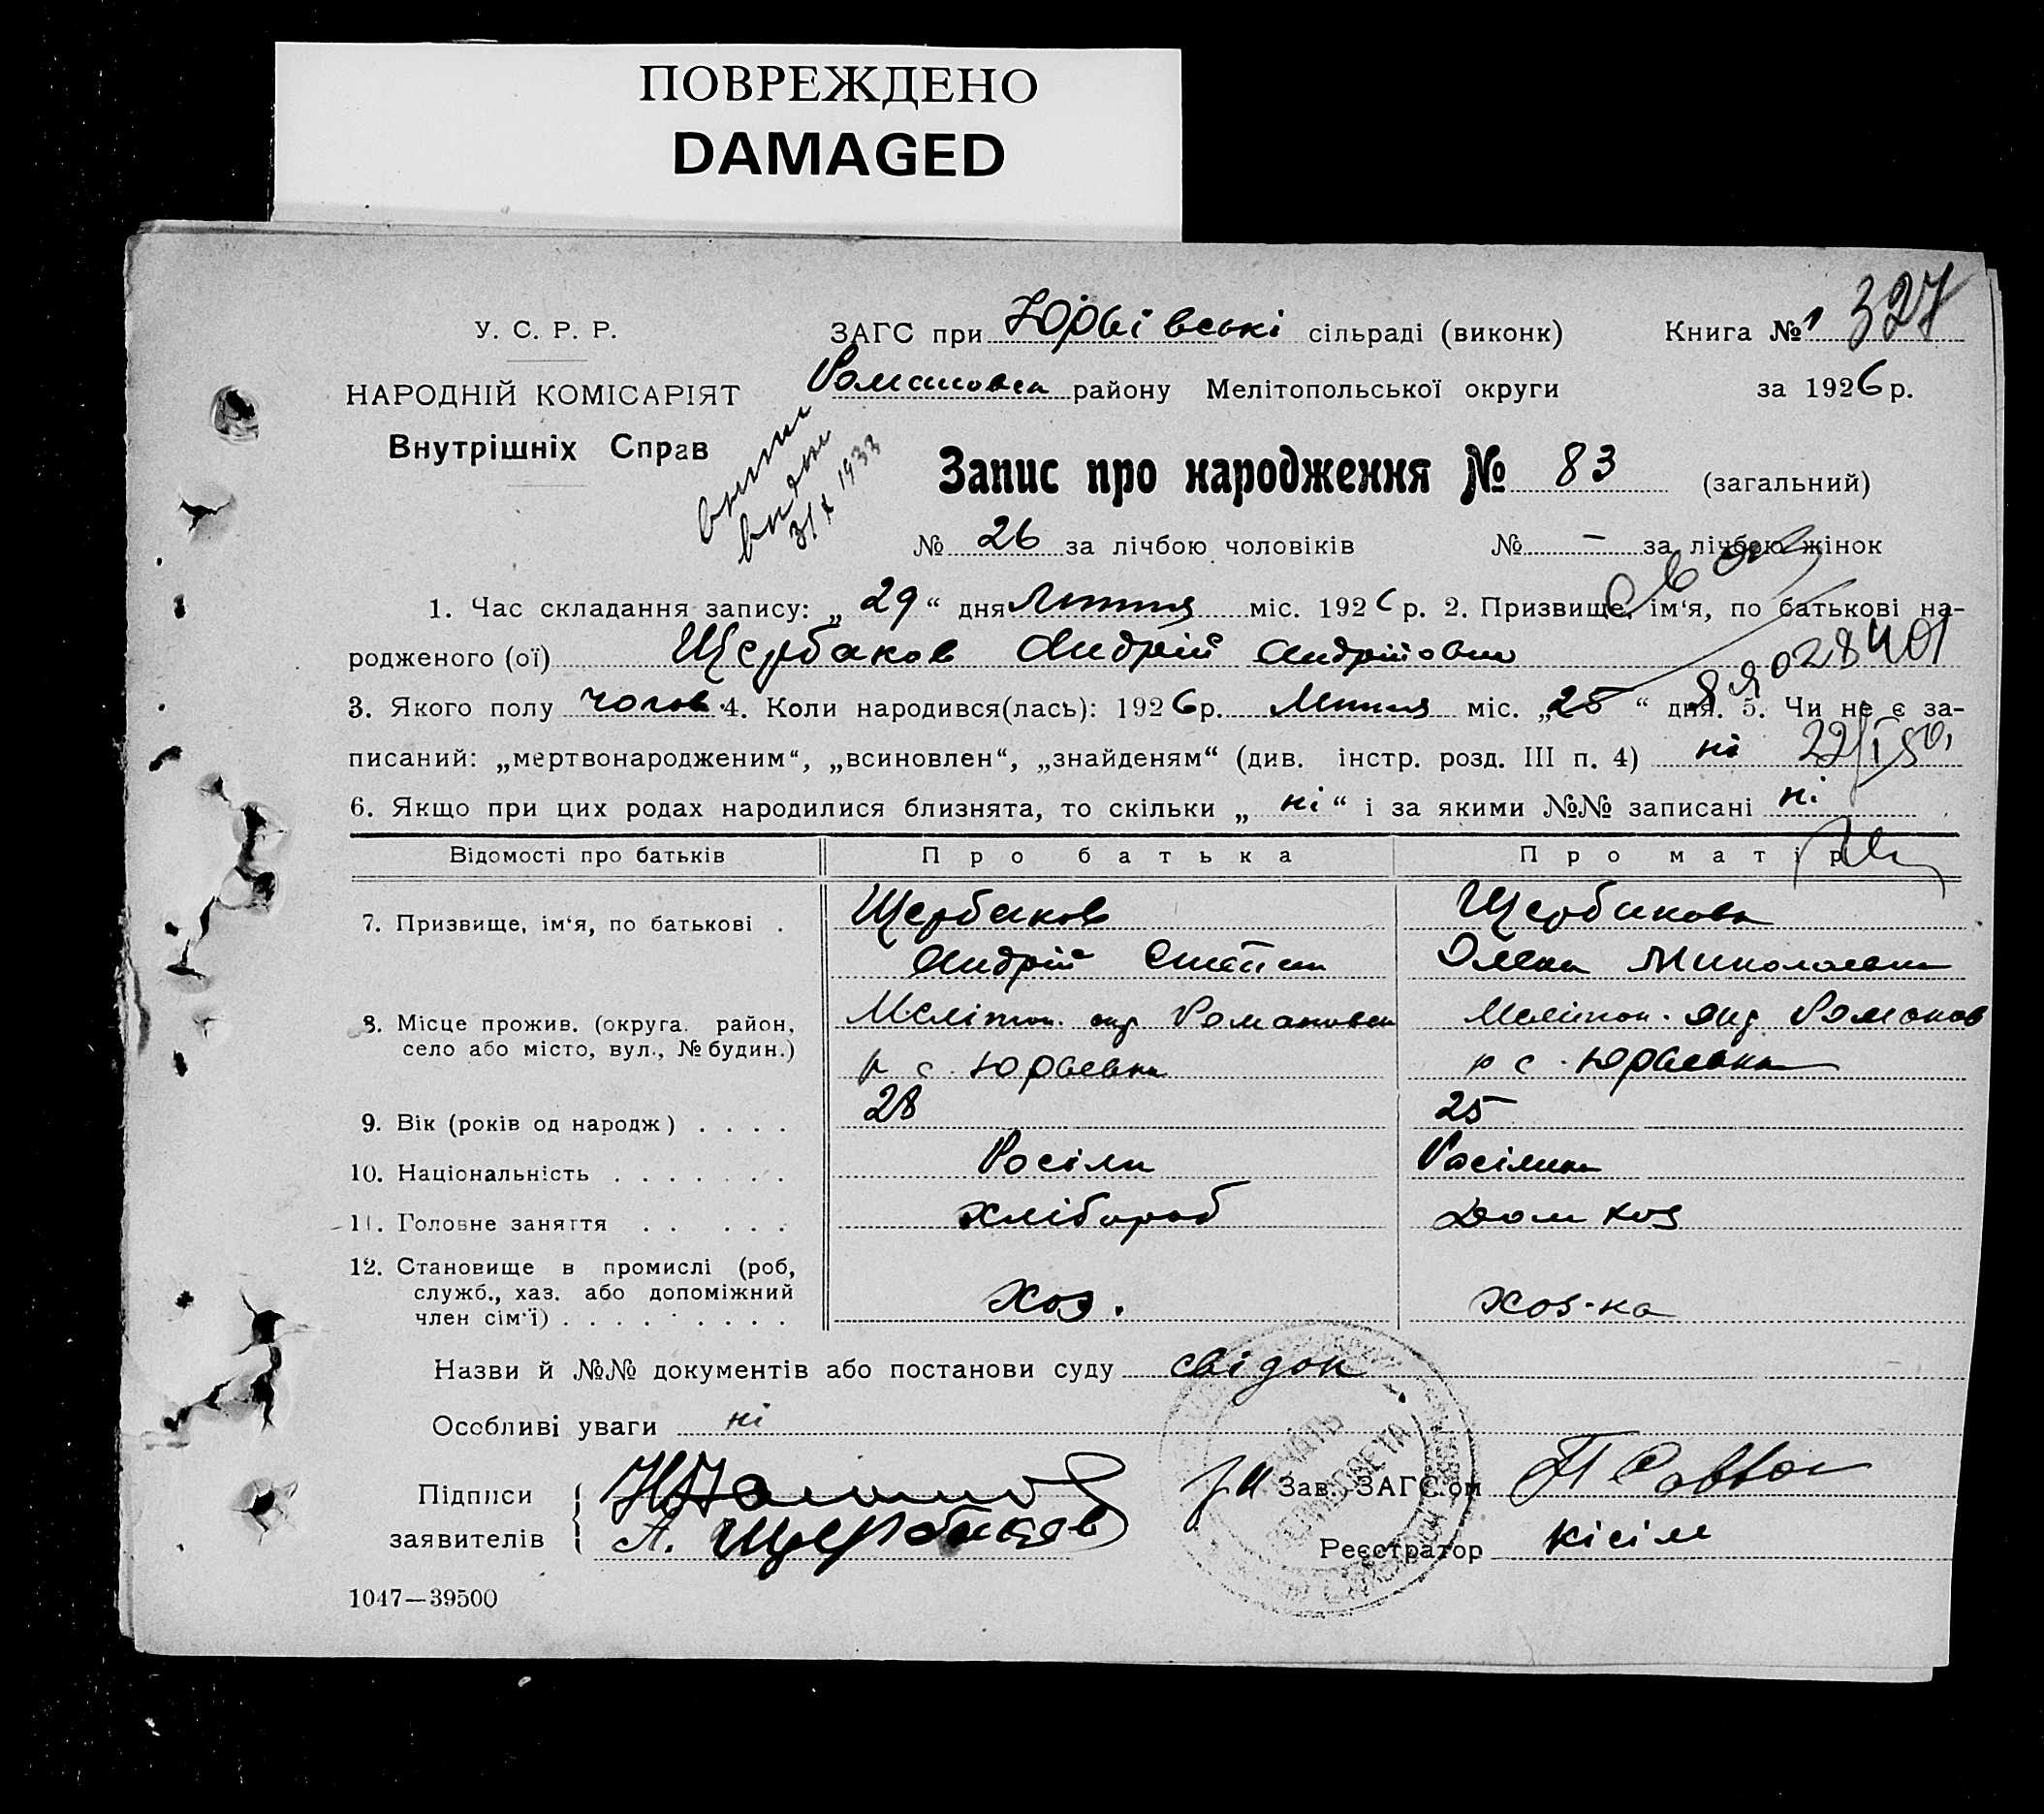 ПОВРЕЖДЕНО
DAMAGED
У. С. Р. Р.
НАРОДНІЙ КОМІСАРІЯТ
Внутрішніх Справ
ЗАГС при Юрʼївські сільраді (виконк) Книга № 1 327
Романовськ району Мелітопольської округи за 1926 р.
31/X 1933
Запис про народження № 83 (загальний)
№ 26 за лічбою чоловіків № – за лічбою жінок
1. Час складання запису: „29“ дня міс. 1926 р. 2. Призвище, ім‘я, по батькові на-
родженого (ої) Щербаков Андрій Андрійович
028401
3. Якого полу чолов. 4. Коли народився(лась): 1926 р. міс. „25“ дня. 5. Чи не є за-
писаний: „мертвонародженим“, „всиновлен“, „знайденям“ (див. інстр. розд. III п. 4) ні
6. Якщо при цих родах народилися близнята, то скільки „ні“ і за якими №№ записані ні
Відомості про батьків Про батька Про матір
7. Призвище, ім‘я, по батькові . Щербаков Щербакова
Андрій Степан Олена Миколаевна
8. Місце прожив. (округа. район, село або місто, вул., № будин.) Мелітоп. окр Романовськ Меліітоп. окр. Романов
р с. Юрьевка р с. Юрьевка
9. Вік (років од народж) . . . . 28 25
10. Національність . . . . . . . Росіян Росіянка
11. Головне заняття . . . . . Хлібороб Дом хоз
12. Становище в промислі (роб,
служб., хаз. або допоміжний
член сім‘ї) . . . . . . . . . Хоз. Хоз-ка
Назви й №№ документів або постанови суду свідок
Особливі уваги ні
Підписи
заявителів
А. Щербаков
Зав. ЗАГС‘ом
Реєстратор Кісіль
1047—39500